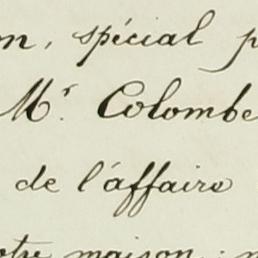 on, spécial p
Mr. Colombe
de l'affaire
otre maison